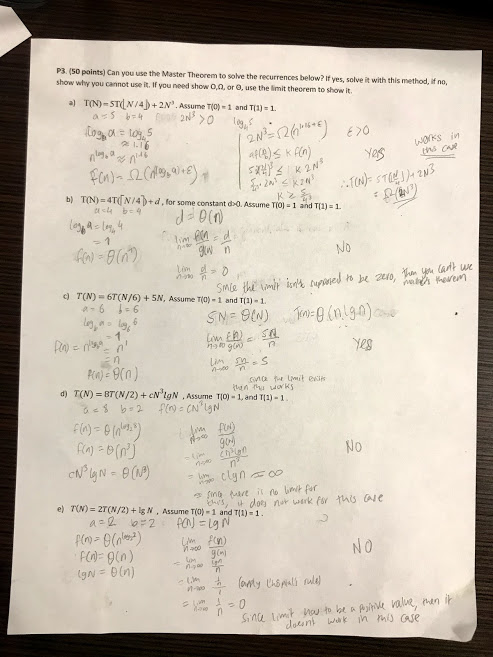 P3. (50 points) Can you use the Master Theorem to solve the recurrences below? If yes, solve it with this method, if no,
show why you cannot use it. If you need show O,Ω, or Θ, use the limit theorem to show it.
a) T(N) = 5T(⌊N/4⌋) + 2N³. Assume T(0) = 1 and T(1) = 1.
a = 5 b = 4 2N³ > 0
log_b a = log_4 5
≈ 1.16
n^log_b a ≈ n^1.16
f(n) = Ω(n^(log_b a)+ε)
log_4 5
2N³ = Ω(n^1.16+ε) ε>0
af(n/b) ≤ k f(n)
Yes
works in
this case
∴ T(N) = 5T(⌊N/4⌋) + 2N³
b) T(N) = 4T(⌊N/4⌋) + d, for some constant d>0. Assume T(0) = 1 and T(1) = 1.
a = 4 b = 4
d = Θ(n)
log_b a = log_4 4
= 1
f(n) = Θ(n^1)
lim n→∞ f(n)/g(n) = d/n
lim n→∞ d/n = 0
No
Since the limit isn't supposed to be zero, then you can't use
master's theorem
c) T(N) = 6T(N/6) + 5N, Assume T(0) = 1 and T(1) = 1.
a = 6 b = 6
5N = Θ(N) T(n) = Θ(n lg n)
log_b a = log_6 6
= 1
f(n) = n^log_b a = n^1
= n
f(n) = Θ(n)
lim n→∞ f(n)/g(n) = 5n/n
lim n→∞ 5n/n = 5
Yes
since the limit exists
then this works
d) T(N) = 8T(N/2) + cN³lgN, Assume T(0) = 1, and T(1) = 1.
a = 8 b = 2 f(n) = cN³lgN
f(n) = Θ(n^log_2 8)
f(n) = Θ(n³)
cN³ lg N = Θ(N³)
lim n→∞ f(n)/g(n)
= lim n→∞ cn³lgn/n³
= lim n→∞ c lg n = ∞
No
since there is no limit for
this, it does not work for this case
e) T(N) = 2T(N/2) + lg N, Assume T(0) = 1 and T(1) = 1.
a = 2 b = 2 f(n) = lg N
f(n) = Θ(n^log_2 2)
f(n) = Θ(n)
lg N = Θ(n)
lim n→∞ f(n)/g(n)
= lim n→∞ lgn/n
= lim n→∞ (apply L'hopitals rule)
= lim n→∞ 1/n = 0
NO
Since limit has to be a positive value, then it
doesn't work in this case